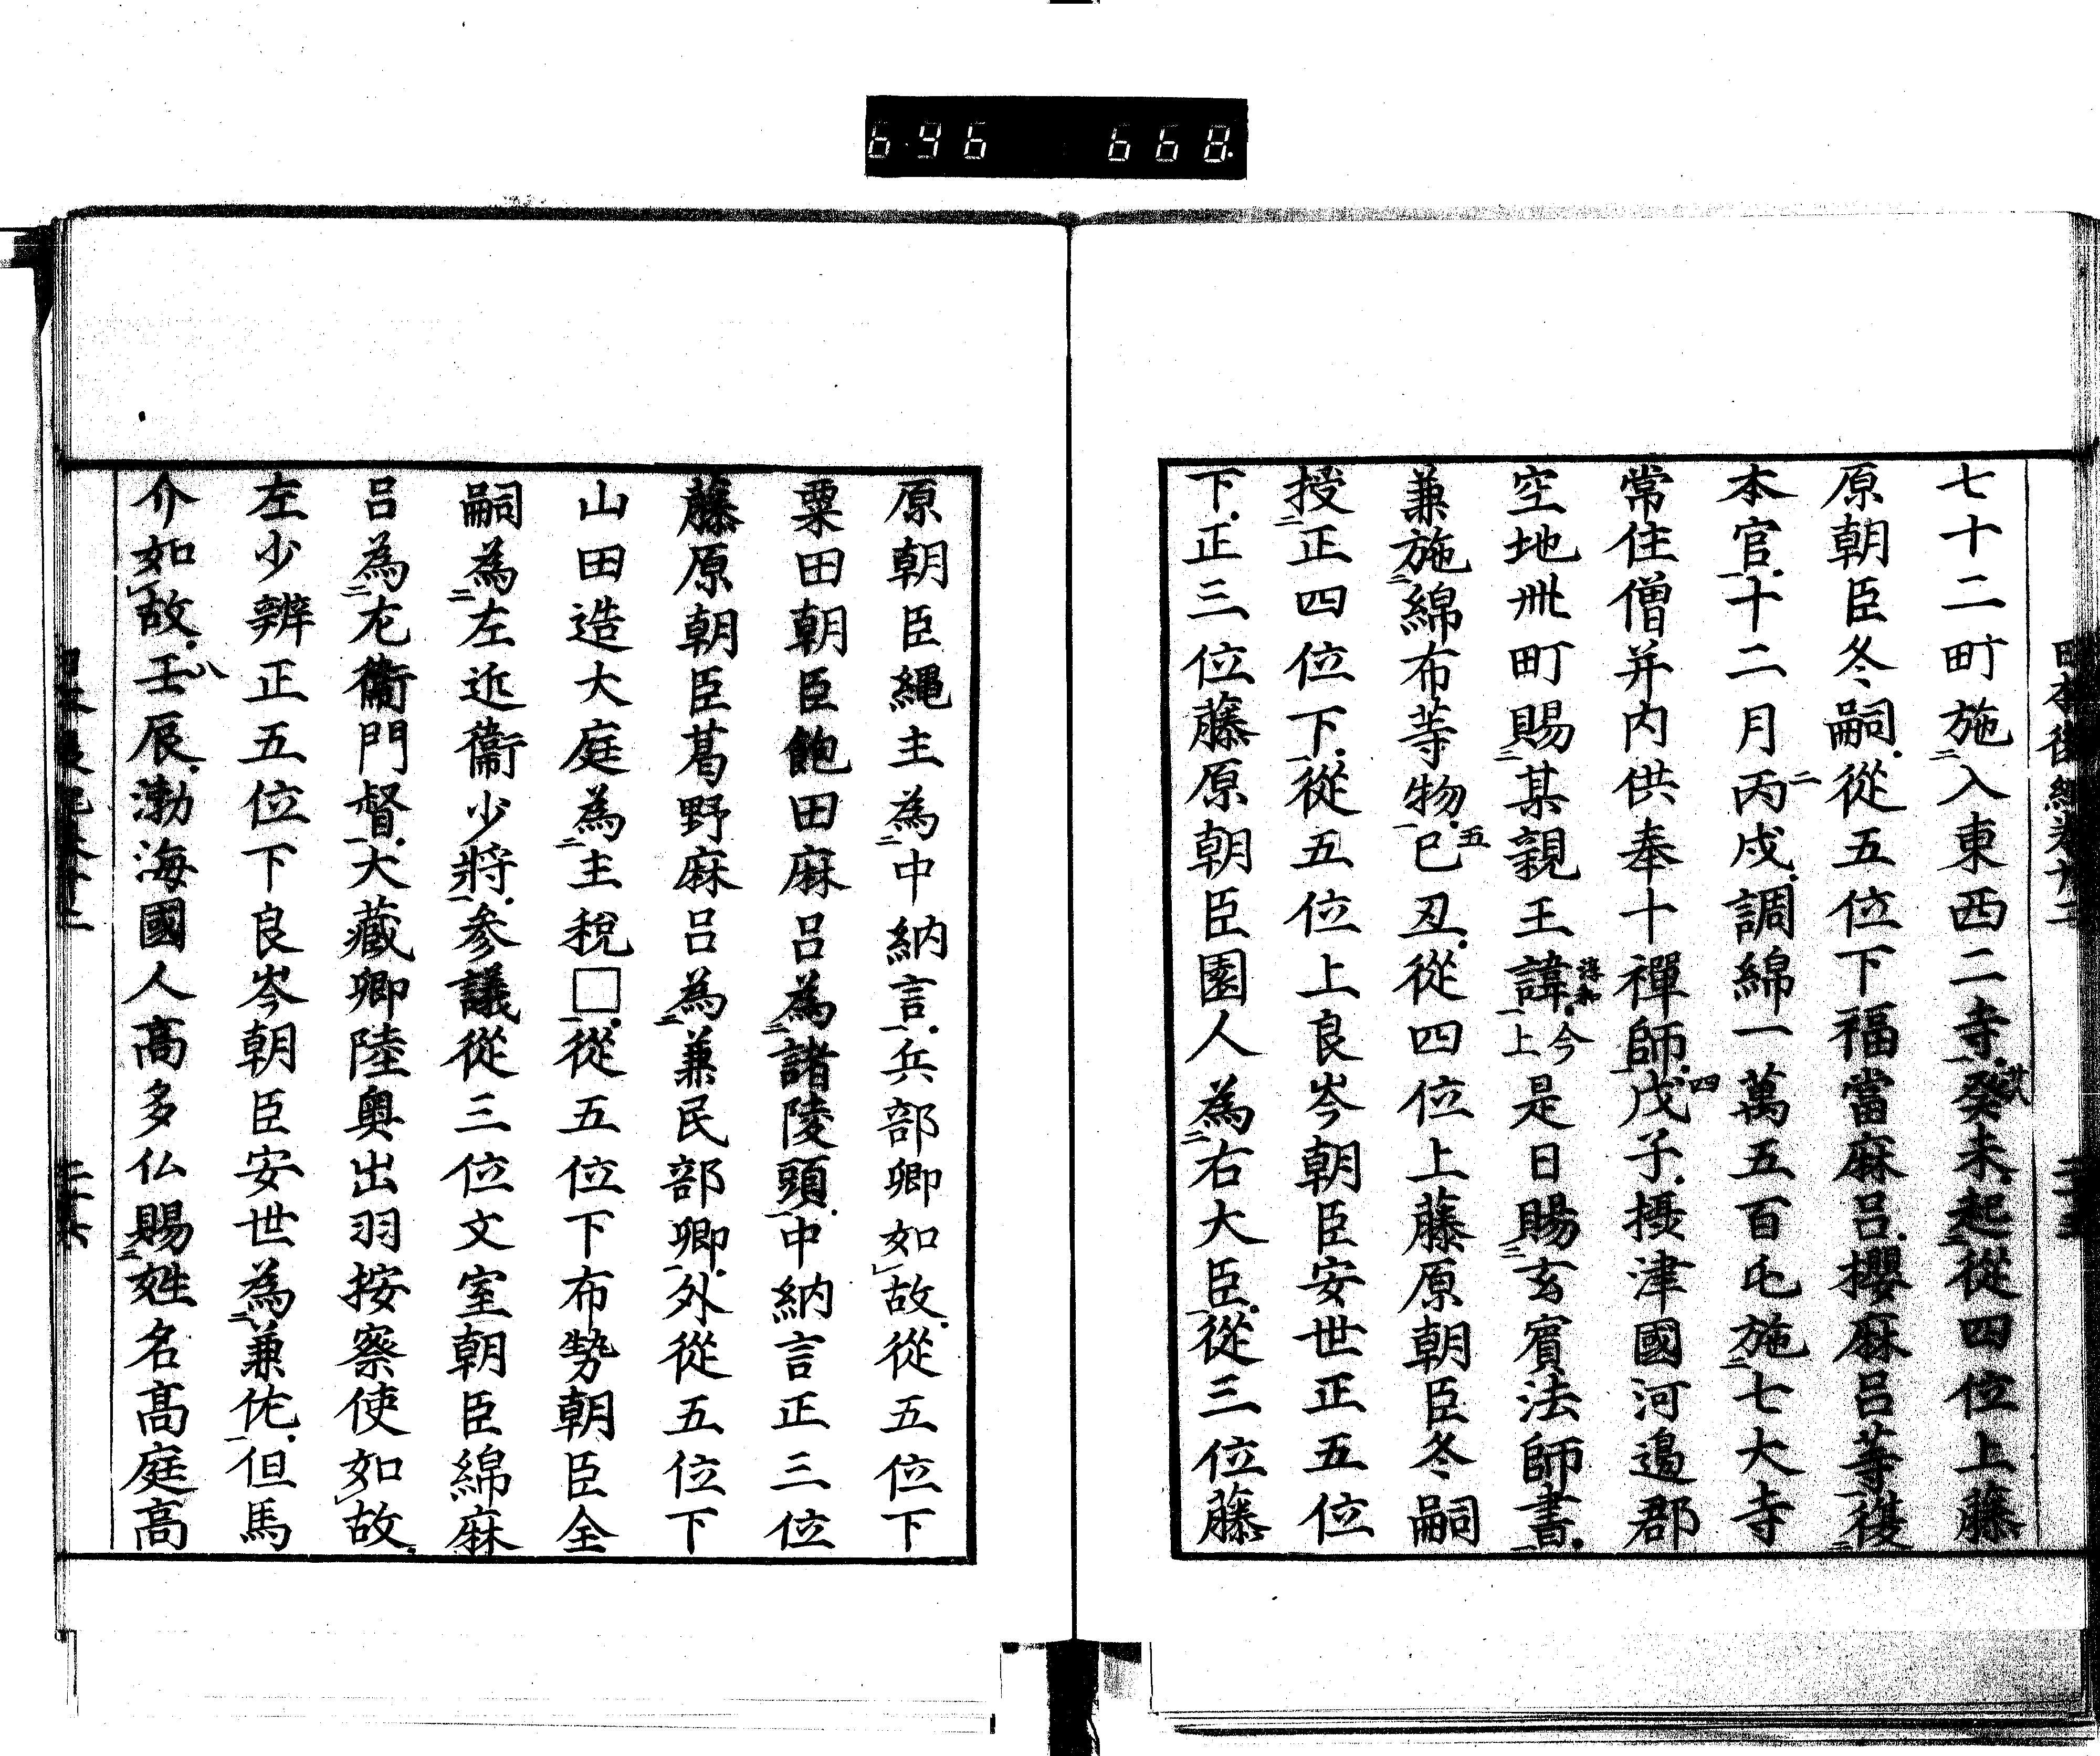 646 668
日本後紀卷廿二
七十二町施入東西二寺癸未起從四位上藤
原朝臣冬嗣從五位下福當麻呂攖麻呂等復
本官十二月丙戌調綿一萬五百屯施七大寺
常住僧并内供奉十禪師戊子攝津國河邉郡
空地卅町賜某親王諱今上是日賜玄賓法師書
兼施綿布等物己丑從四位上藤原朝臣冬嗣
授正四位下從五位上良岑朝臣安世正五位
下正三位藤原朝臣園人為右大臣從三位藤
原朝臣縄主為中納言兵部卿如故從五位下
粟田朝臣飽田麻呂為諸陵頭中納言正三位
藤原朝臣葛野麻呂為兼民部卿外從五位下
山田造大庭為主税□從五位下布勢朝臣全
嗣為左近衞少將参議從三位文室朝臣綿麻
呂為左衞門督大藏卿陸奥出羽按察使如故
左少辨正五位下良岑朝臣安世為兼佐但馬
介如故壬辰渤海國人高多仏賜姓名髙庭高